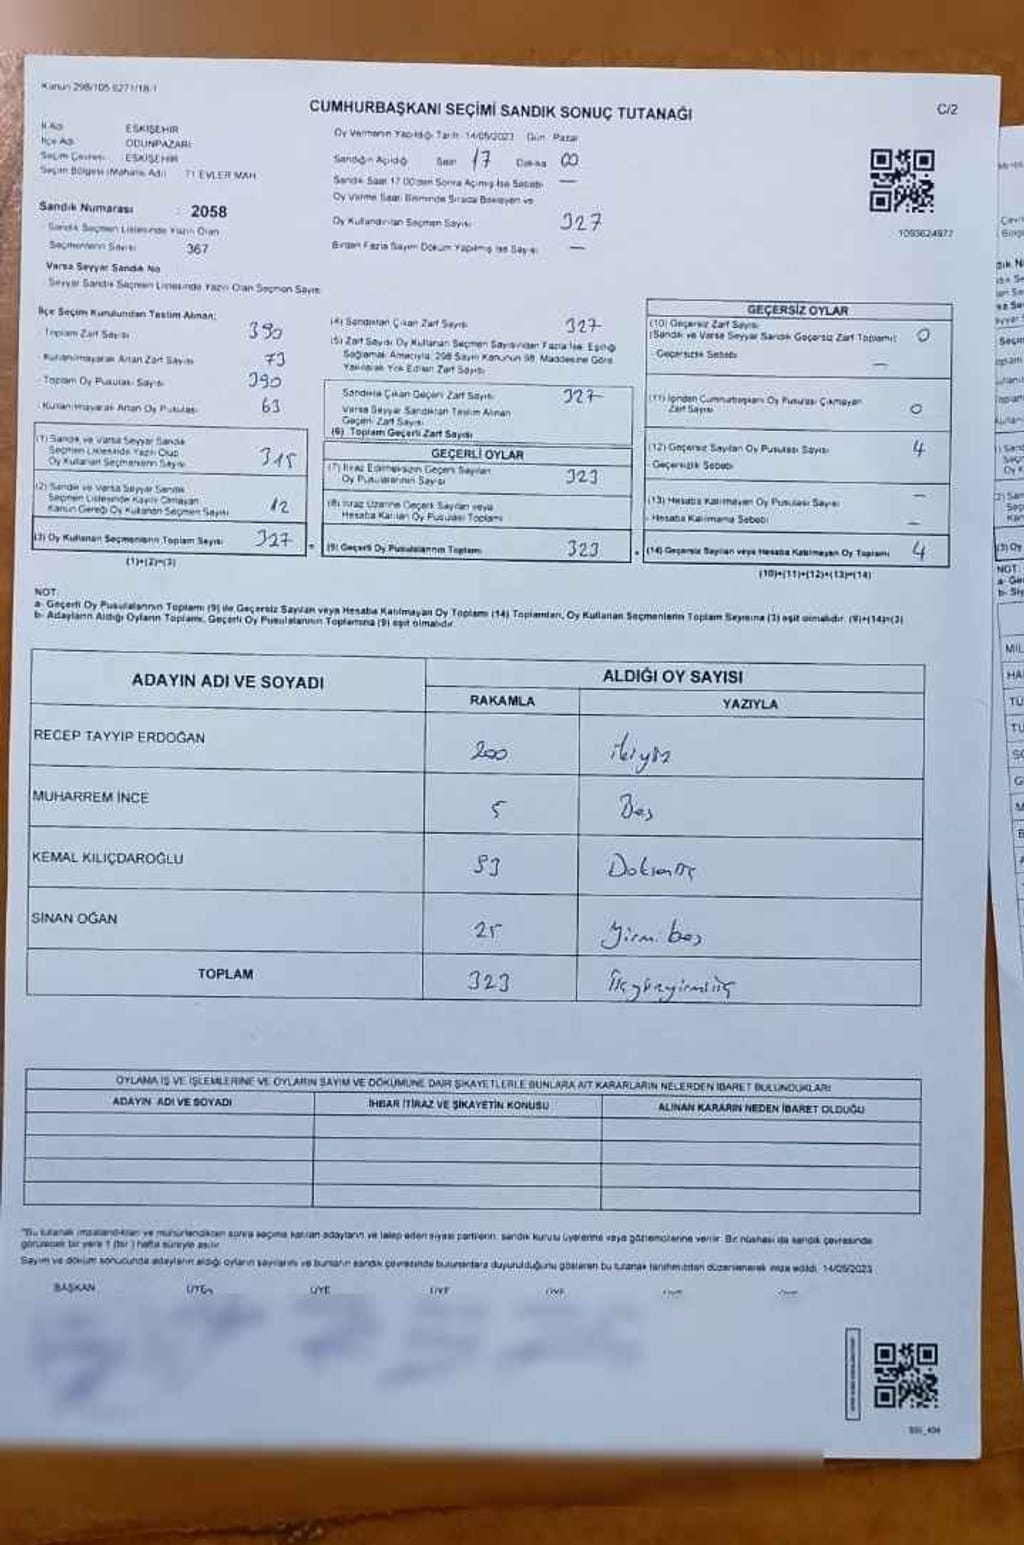 Kanun 298/105 6271/18-1
CUMHURBAŞKANI SEÇİMİ SANDIK SONUÇ TUTANAĞI
C/2
İl Adı ESKİŞEHİR
İlçe Adı ODUNPAZARI
Seçim Çevresi ESKİŞEHİR
Seçim Bölgesi (Mahalle Adı) 71 EVLER MAH.
Sandık Numarası : 2058
Sandık Seçmen Listesinde Yazılı Olan
Seçmenlerin Sayısı 367
Varsa Seyyar Sandık No
Seyyar Sandık Seçmen Listesinde Yazılı Olan Seçmen Sayısı
Oy Vermenin Yapıldığı Tarih 14/05/2023 Gün Pazar
Sandığın Açıldığı Saat 17 Dakika 00
Sandık Saat 17:00'den Sonra Açılmış İse Sebebi —
Oy Verme Saati Bitiminde Sırada Bekleyen ve
Oy Kullandırılan Seçmen Sayısı 327
Birden Fazla Sayım Döküm Yapılmış İse Sayısı —
1093624977
İlçe Seçim Kurulundan Teslim Alınan;
Toplam Zarf Sayısı 390
Kullanılmayarak Artan Zarf Sayısı 73
Toplam Oy Pusulası Sayısı 390
Kullanılmayarak Artan Oy Pusulası 63
(1) Sandık ve Varsa Seyyar Sandık
Seçmen Listesinde Yazılı Olup
Oy Kullanan Seçmenlerin Sayısı 315
(2) Sandık ve Varsa Seyyar Sandık
Seçmen Listesinde Kayıtlı Olmayan,
Kanun Gereği Oy Kullanan Seçmen Sayısı 12
(3) Oy Kullanan Seçmenlerin Toplam Sayısı 327
(1)+(2)=(3)
(4) Sandıktan Çıkan Zarf Sayısı 327
(5) Zarf Sayısı Oy Kullanan Seçmen Sayısından Fazla İse, Eşitliği
Sağlamak Amacıyla, 298 Sayılı Kanunun 98. Maddesine Göre
Yakılarak Yok Edilen Zarf Sayısı
Sandıkta Çıkan Geçerli Zarf Sayısı 327
Varsa Seyyar Sandıktan Teslim Alınan
Geçerli Zarf Sayısı
(6) Toplam Geçerli Zarf Sayısı
GEÇERLİ OYLAR
(7) İtiraz Edilmeksizin Geçerli Sayılan
Oy Pusulalarının Sayısı 323
(8) İtiraz Üzerine Geçerli Sayılan veya
Hesaba Katılan Oy Pusulası Toplamı
(9) Geçerli Oy Pusulalarının Toplamı 323
GEÇERSİZ OYLAR
(10) Geçersiz Zarf Sayısı
(Sandık ve Varsa Seyyar Sandık Geçersiz Zarf Toplamı) 0
Geçersizlik Sebebi —
(11) İçinden Cumhurbaşkanı Oy Pusulası Çıkmayan
Zarf Sayısı 0
(12) Geçersiz Sayılan Oy Pusulası Sayısı 4
Geçersizlik Sebebi
(13) Hesaba Katılmayan Oy Pusulası Sayısı —
Hesaba Katılmama Sebebi —
(14) Geçersiz Sayılan veya Hesaba Katılmayan Oy Toplamı 4
(10)+(11)+(12)+(13)=(14)
NOT
a- Geçerli Oy Pusulalarının Toplamı (9) ile Geçersiz Sayılan veya Hesaba Katılmayan Oy Toplamı (14) Toplamları, Oy Kullanan Seçmenlerin Toplam Sayısına (3) eşit olmalıdır. (9)+(14)=(3)
b- Adayların Aldığı Oyların Toplamı, Geçerli Oy Pusulalarının Toplamına (9) eşit olmalıdır.
ADAYIN ADI VE SOYADI
ALDIĞI OY SAYISI
RAKAMLA YAZIYLA
RECEP TAYYİP ERDOĞAN 200 ikiyüz
MUHARREM İNCE 5 Beş
KEMAL KILIÇDAROĞLU 93 Doksanüç
SİNAN OĞAN 25 Yirmi beş
TOPLAM 323 üçyüzyirmiüç
OYLAMA İŞ VE İŞLEMLERİNE VE OYLARIN SAYIM VE DÖKÜMÜNE DAİR ŞİKAYETLERLE BUNLARA AİT KARARLARIN NELERDEN İBARET BULUNDUKLARI
ADAYIN ADI VE SOYADI İHBAR İTİRAZ VE ŞİKAYETİN KONUSU ALINAN KARARIN NEDEN İBARET OLDUĞU
*Bu tutanak imzalandıktan ve mühürlendikten sonra seçime katılan adayların ve talep eden siyasi partilerin, sandık kurulu üyelerine veya gözlemcilerine verilir. Bir nüshası da sandık çevresinde
görülecek bir yere 1 (bir) hafta süreyle asılır.
Sayım ve döküm sonucunda adayların aldığı oyların sayılarını ve bunların sandık çevresinde bulunanlara duyurulduğunu gösteren bu tutanak tarafımızdan düzenlenerek imza edildi. 14/05/2023
BAŞKAN ÜYE ÜYE ÜYE ÜYE